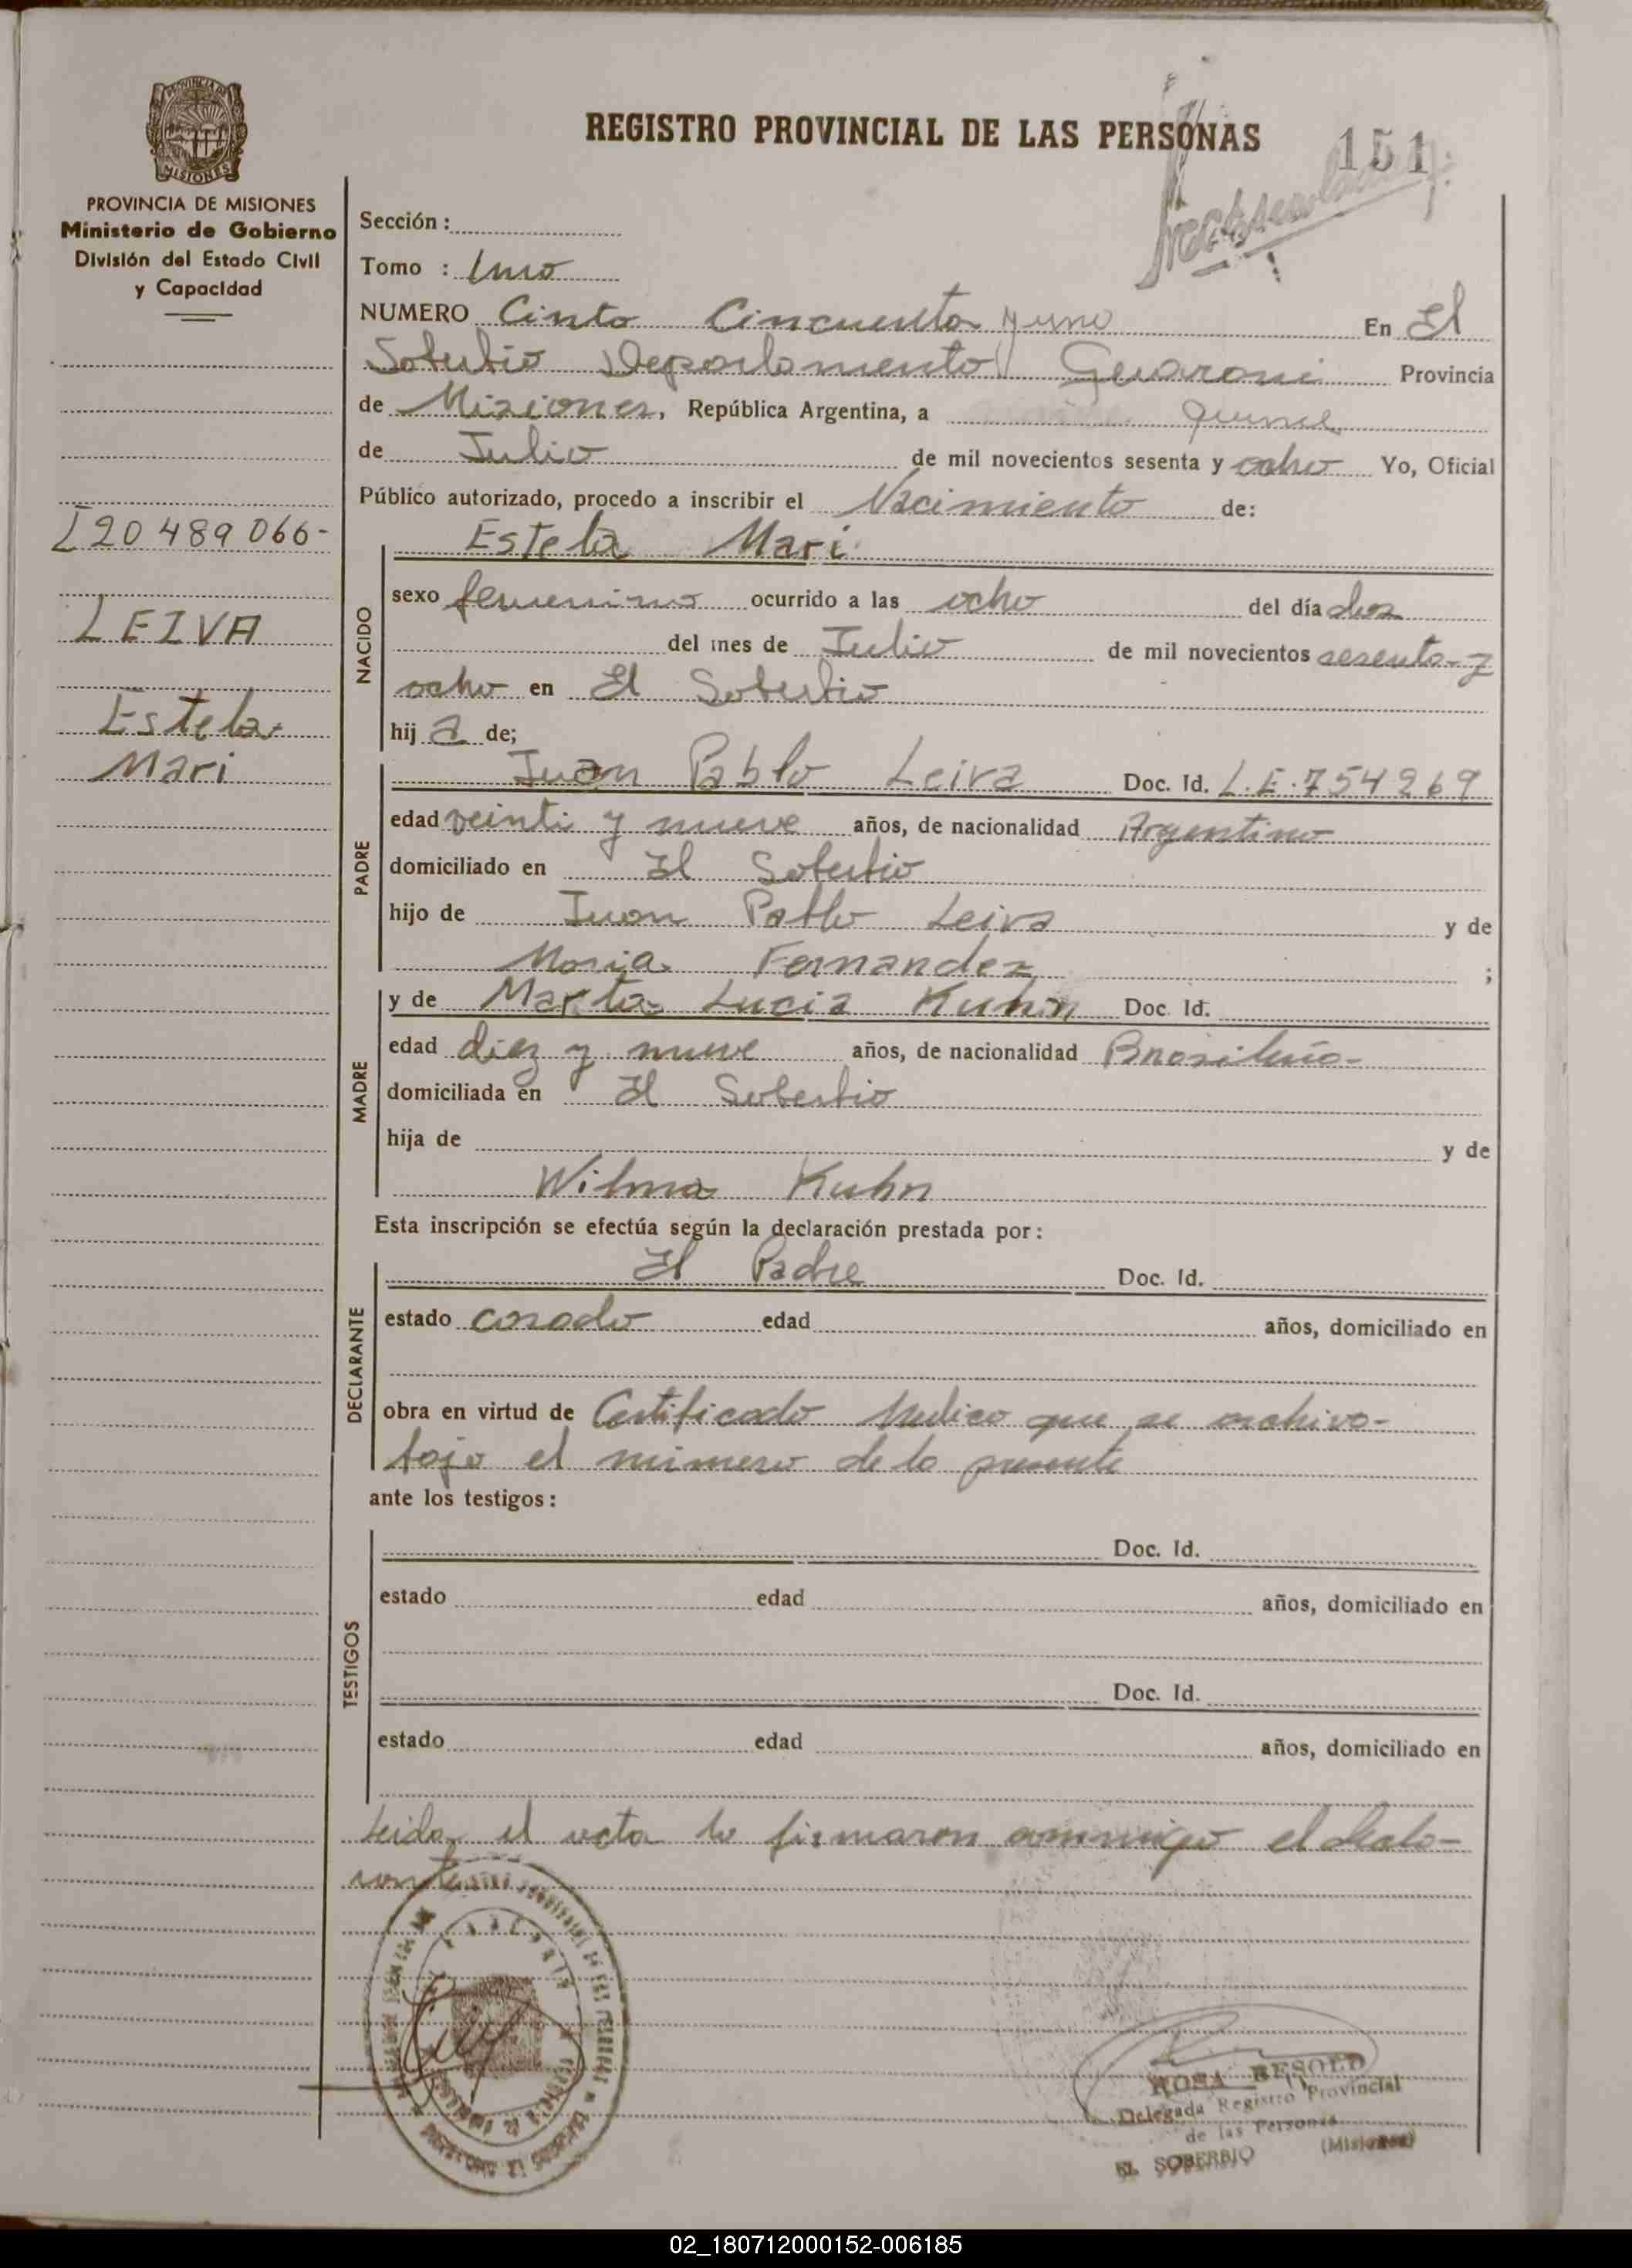 REGISTRO PROVINCIAL DE LAS PERSONAS
151
PROVINCIA DE MISIONES
Ministerio de Gobierno
División del Estado Civil
y Capacidad
20 489 066-
LEIVA
Estela
Mari
Sección:
Tomo : Uno
NUMERO Cinto Cincuenta y uno En El
Soberbio Departamento Guarani Provincia
de Misiones, República Argentina, a quince
de Julio de mil novecientos sesenta y ocho Yo, Oficial
Público autorizado, procedo a inscribir el Nacimiento de:
Estela Mari
NACIDO
sexo femenino ocurrido a las ocho del día diez
del mes de Julio de mil novecientos sesenta y
ocho en El Soberbio
hij a de;
PADRE
Juan Pablo Leiva Doc. Id. L.E. 754269
edad veinti y nueve años, de nacionalidad Argentino
domiciliado en El Soberbio
hijo de Juan Pablo Leiva y de
Maria Fernandez ;
MADRE
y de Marta Lucia Kuhn Doc. Id.
edad diez y nueve años, de nacionalidad Brasileña-
domiciliada en El Soberbio
hija de y de
Wilma Kuhn
Esta inscripción se efectúa según la declaración prestada por:
DECLARANTE
El Padre Doc. Id.
estado casado edad años, domiciliado en
obra en virtud de Certificado Medico que se archiva-
bajo el numero de la presente
ante los testigos:
TESTIGOS
Doc. Id.
estado edad años, domiciliado en
Doc. Id.
estado edad años, domiciliado en
Leida el acta la firmaron conmigo el decla-
rante
ROSA BESOLD
Delegada Registro Provincial
de las Personas
EL SOBERBIO (Misiones)
02_180712000152-006185